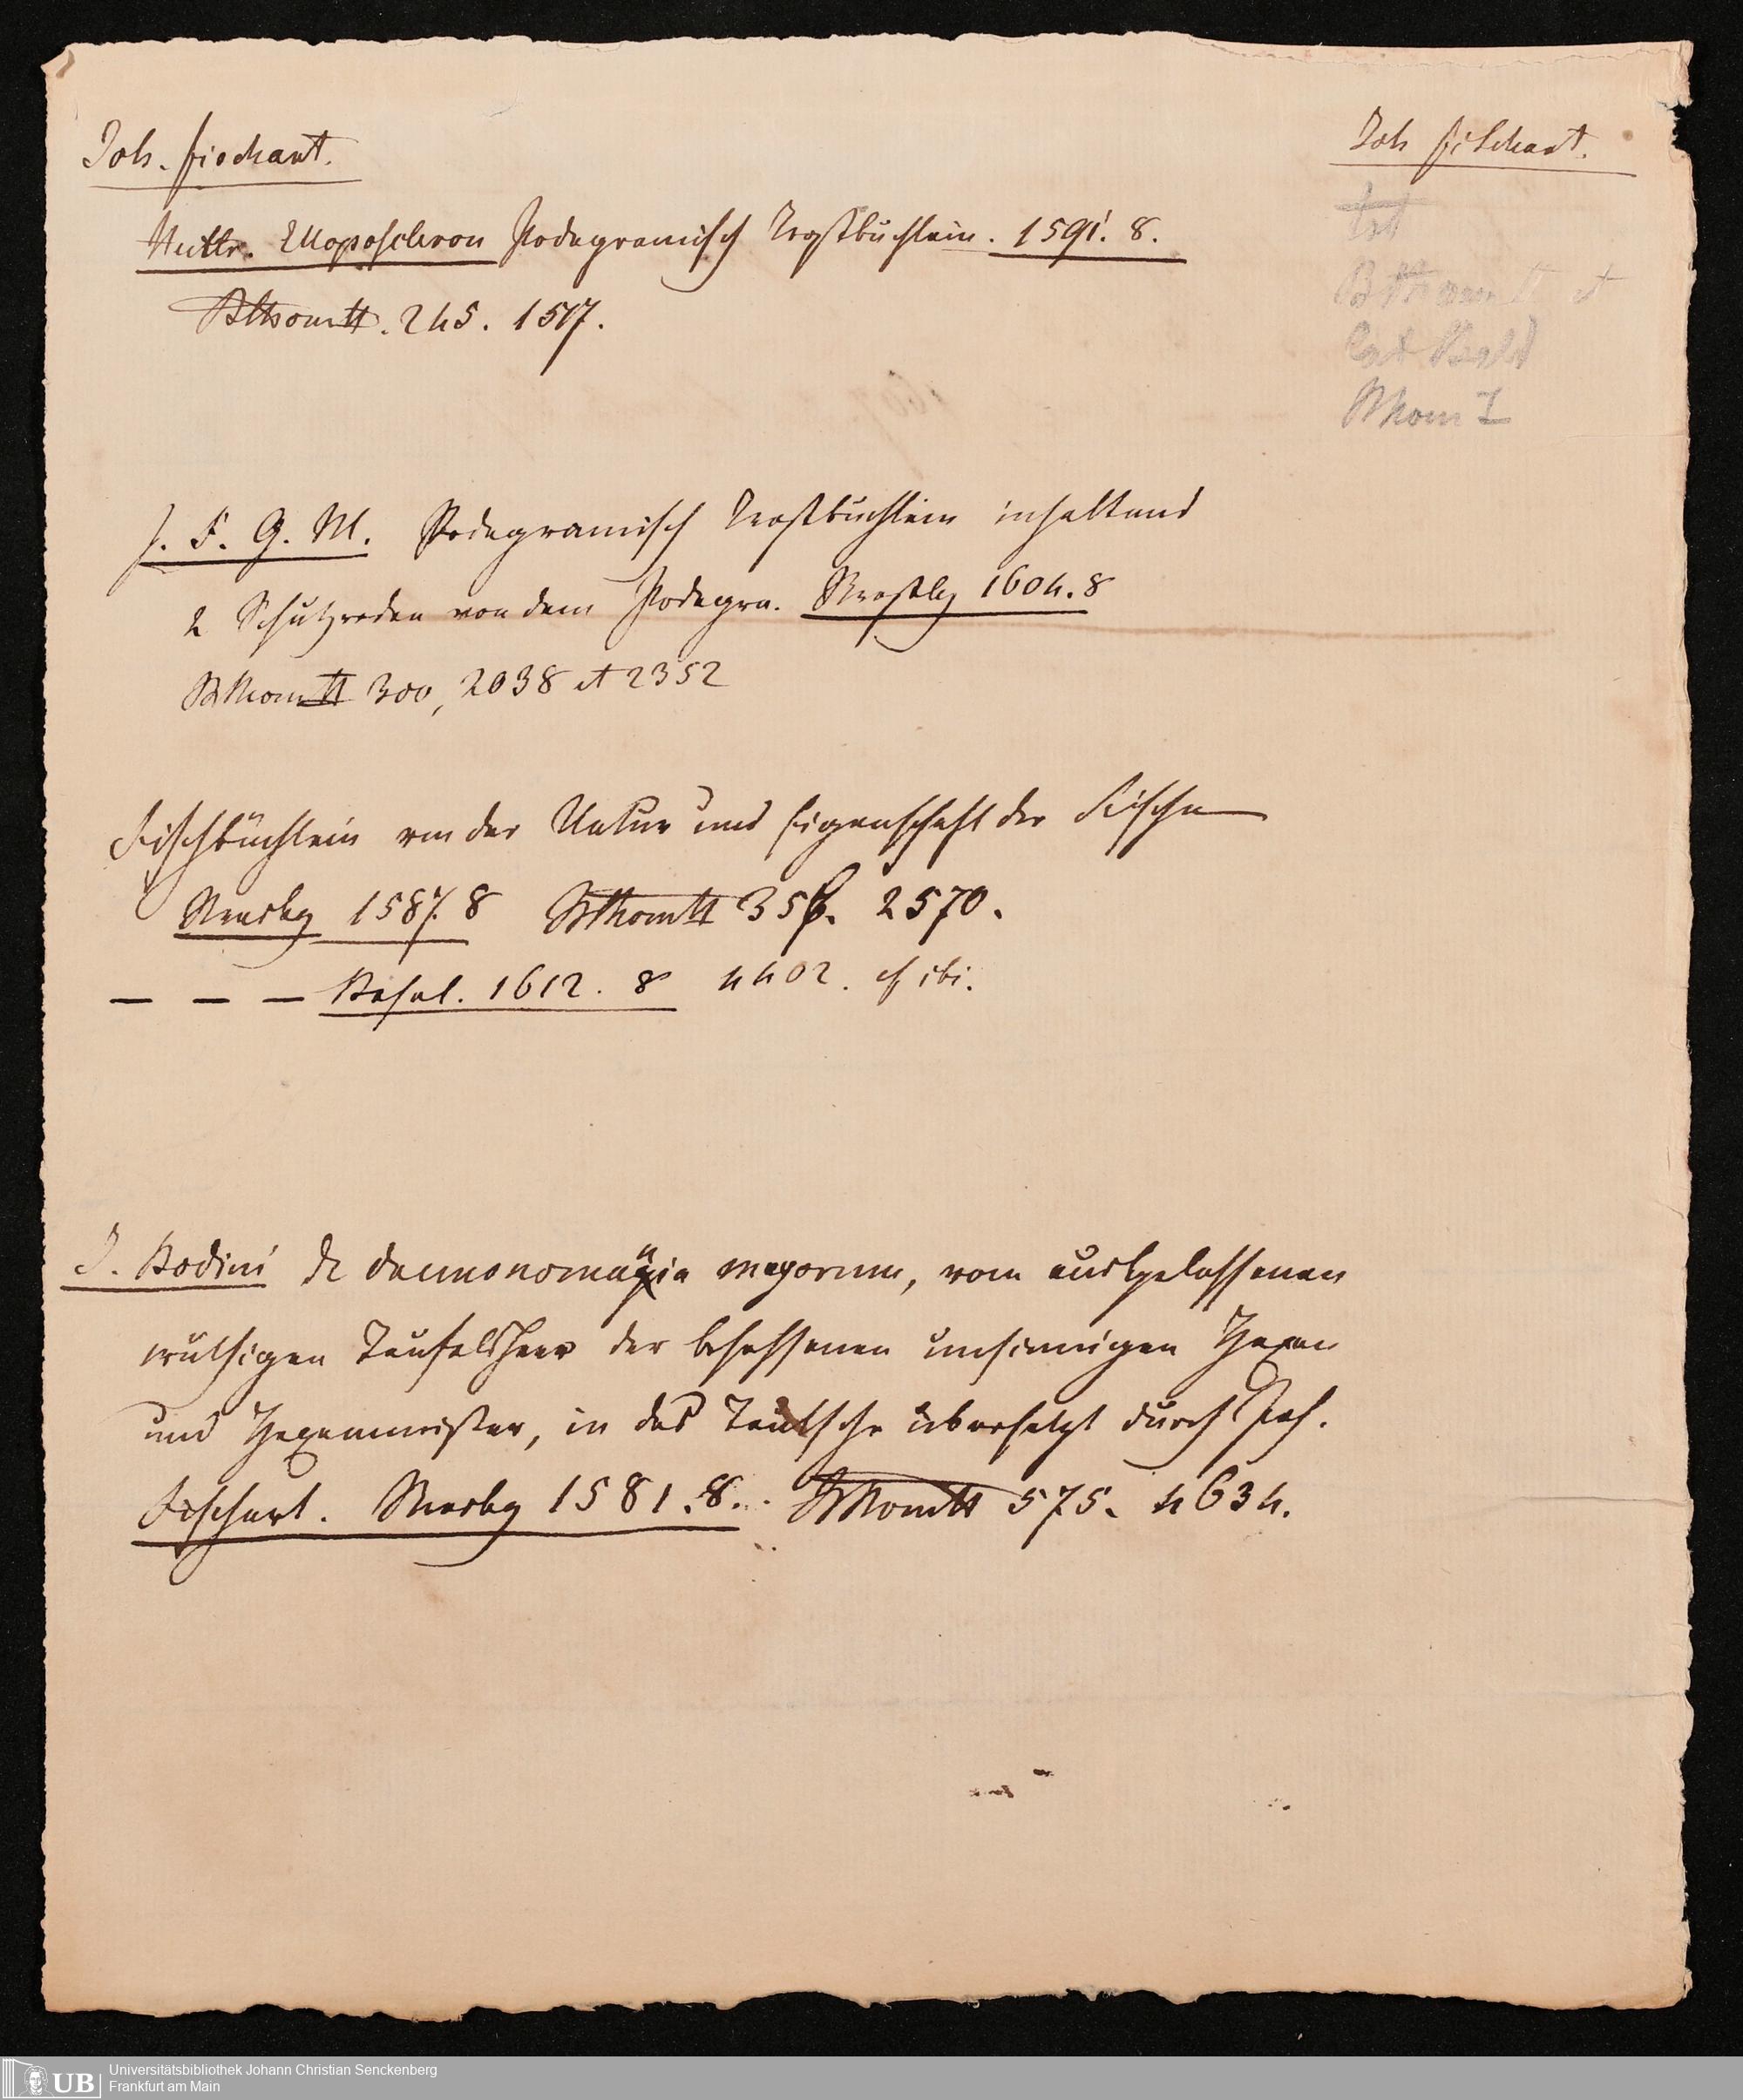 Joh. Fischart.
Joh Fischart.
Hultr. Elloposcleron Podagramisch Trostbüchlein. 1591. 8.
Bthom II. 245. 1517.
Bthom II et
Bthom I
J. F. G. M. Podagramisch Trostbüchlein inhaltend
2 Schutzreden von dem Podagra. Strasbg 1604. 8
Bthom II 300, 2038 et 2352
Fischbüchlein von der Natur und Eigenschaft der Fische
Strasbg 1587. 8 Bthom II 358. 2570.
— — — Basel. 1612. 8 4402. cf ibi.
J. Bodini de daemonomania magorum, vom ausgelassenen
wüthigen Teufelsheer der besessenen unsinnigen Hexen
und Hexenmeister, in das Teutsche übersetzt durch Joh.
Fischart. Strasbg 1581. 8. Bthom II 575. 4634.
UB Universitätsbibliothek Johann Christian Senckenberg
Frankfurt am Main